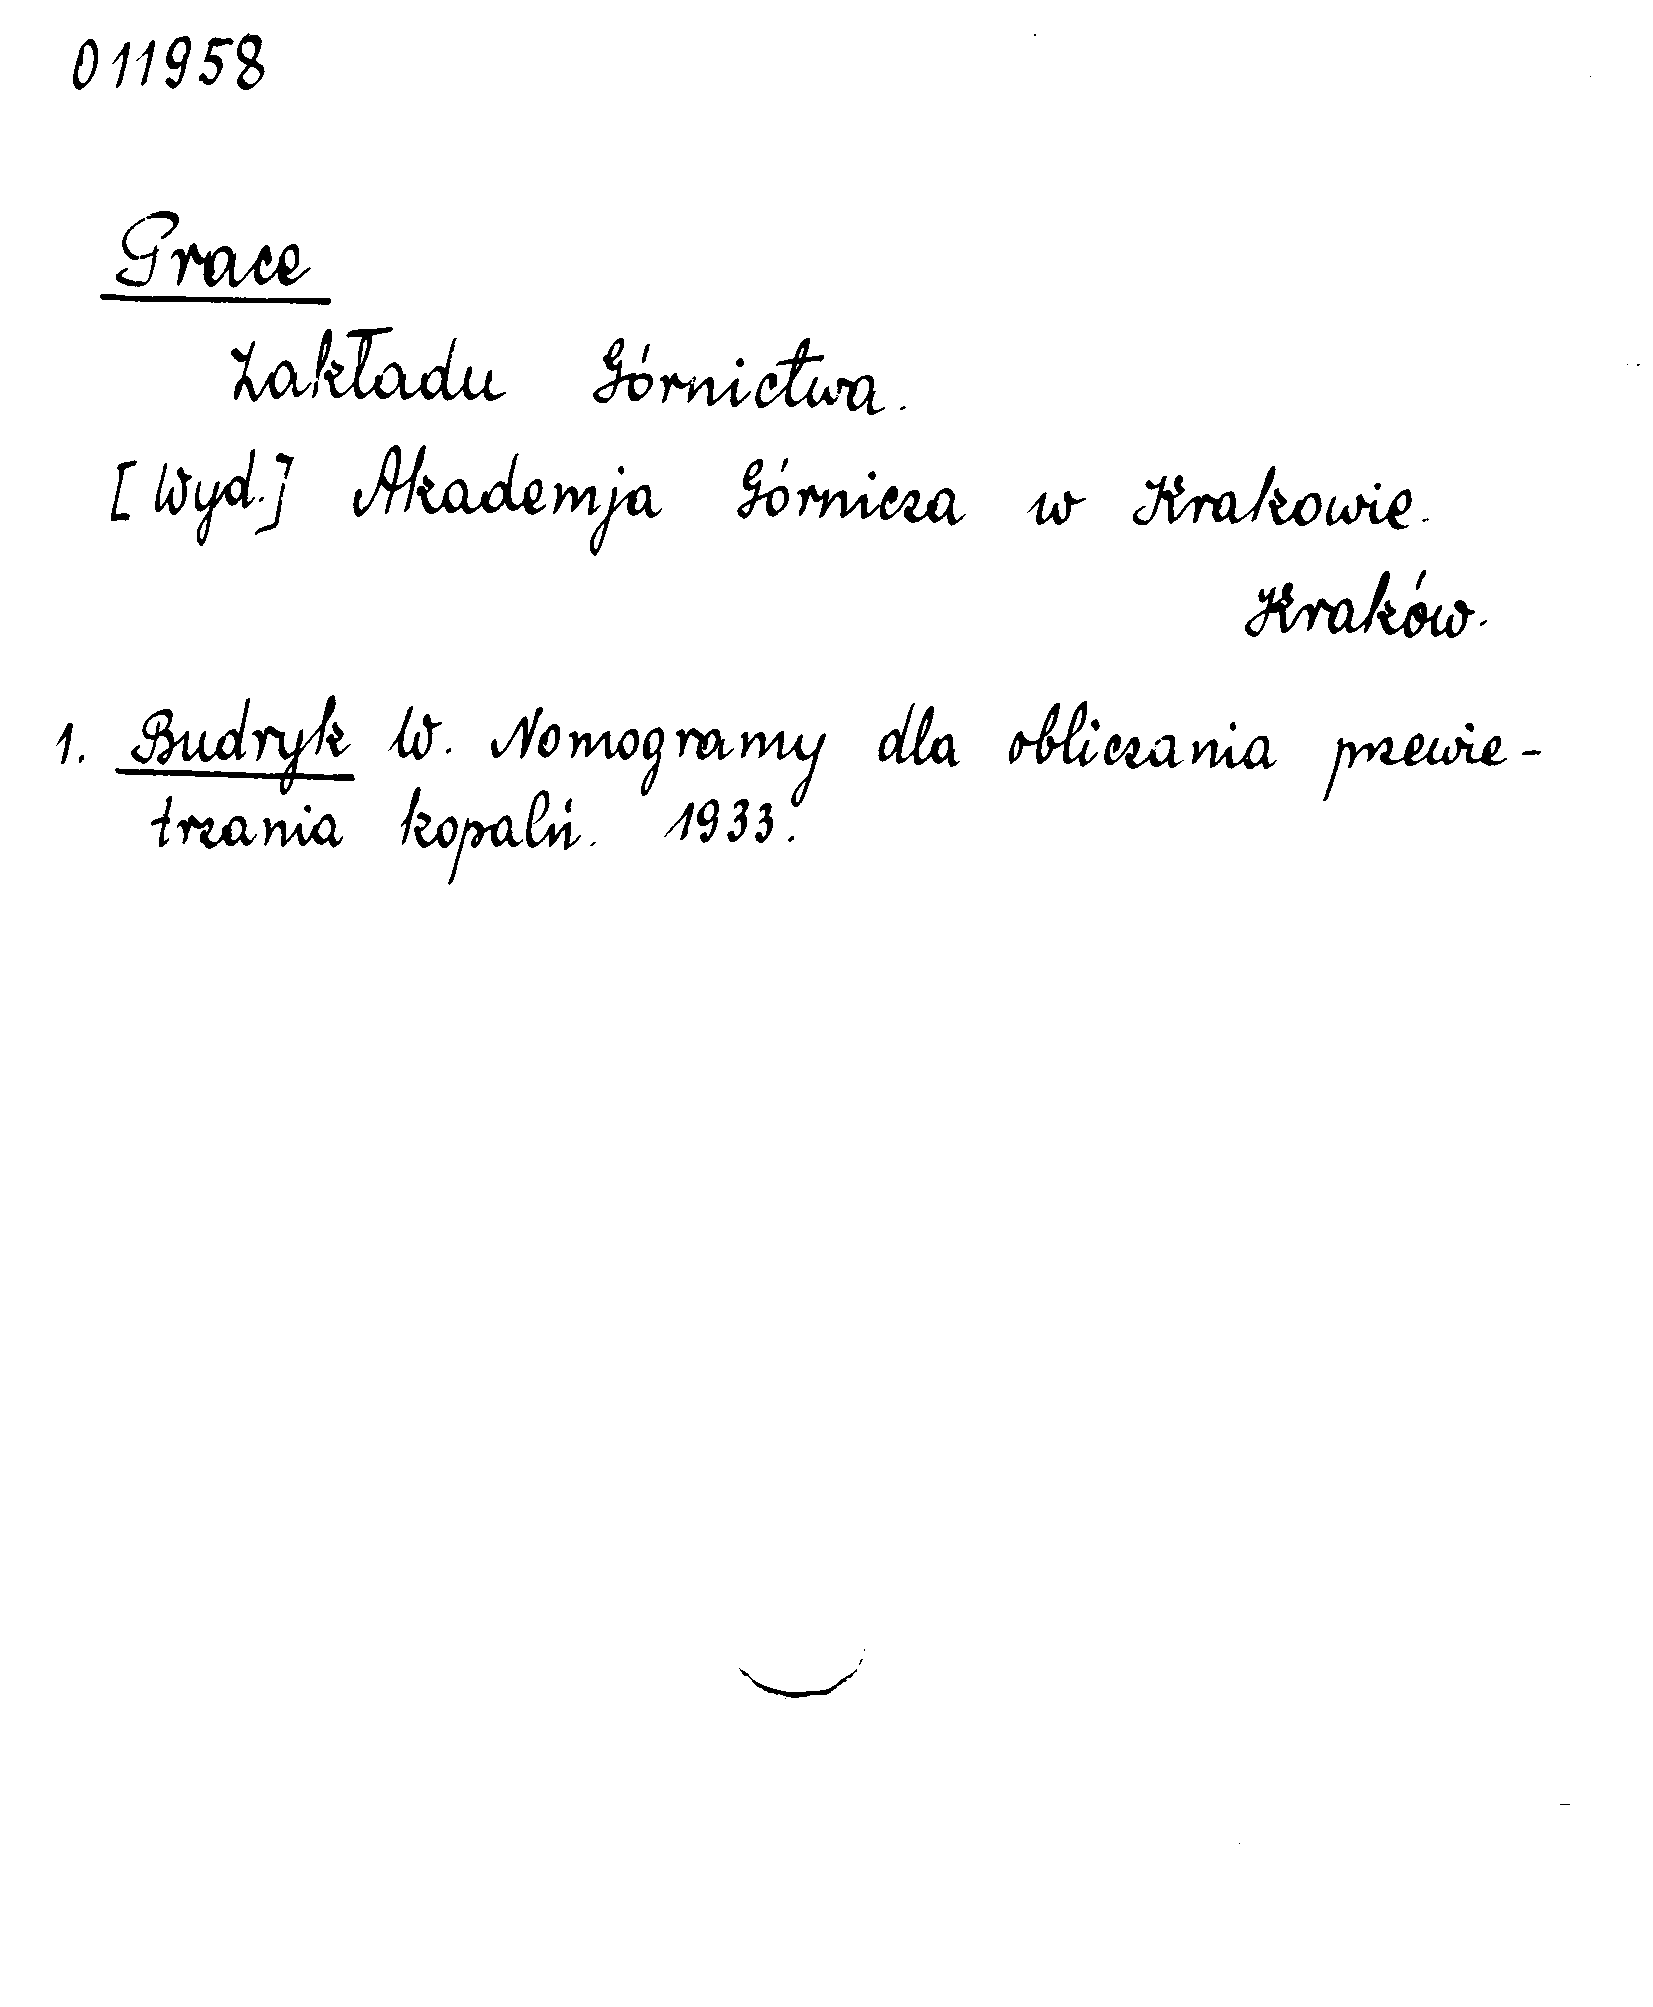 011958
Prace
Zakładu Górnictwa.
[Wyd.] Akademja Górnicza w Krakowie.
Kraków.
1. Budryk W. Nomogramy dla obliczania przewie-
trzania kopalń. 1933.